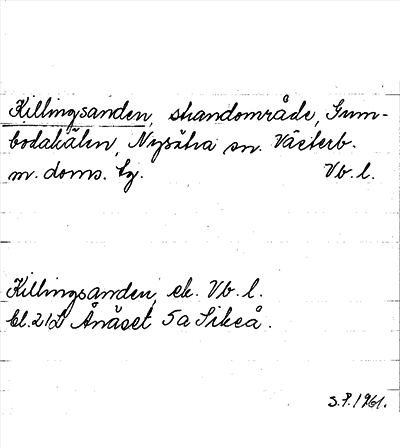 Killingsanden, strandområde, Gum-
bodahälen, Nysätra sn. Västerb.
m. doms. tg. Vb. l.
Killingsanden, ek. Vb. l.
bl. 21L Ånäset 5a Sikeå.
S.P. 1961.